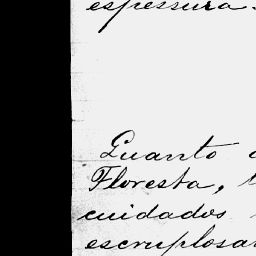 espessura
Quanto
Floresta,
cuidados
escrupulosa